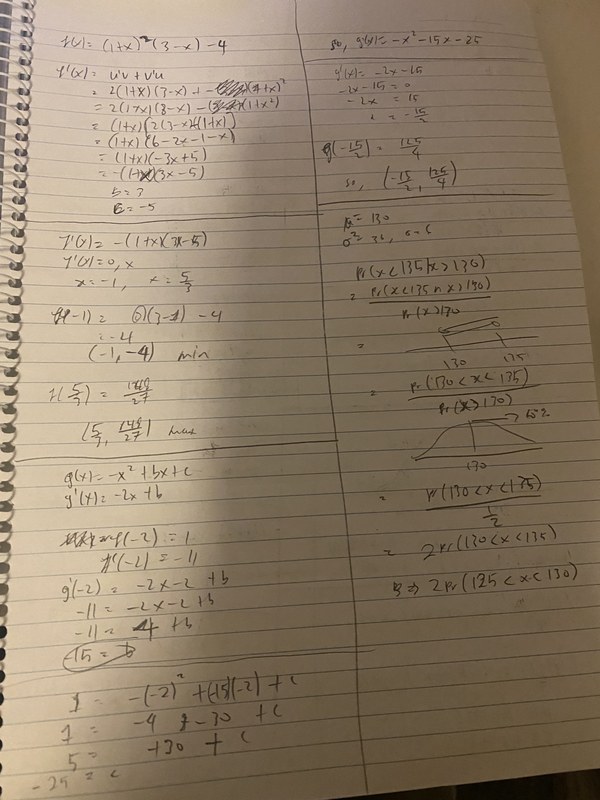 f(x) = (1+x)²(3-x) - 4
f'(x) = u'v + v'u
= 2(1+x)(3-x) + -(1+x)²
= 2(1+x)(3-x) - (1+x²)
= (1+x)(2(3-x)-(1+x))
= (1+x)(6-2x-1-x)
= (1+x)(-3x+5)
= -(1+x)(3x-5)
= 3
= -5
f'(x) = -(1+x)(3x-5)
f'(x)=0, x
x=-1, x=5/3
f(-1) = (0)(3-1) -4
= -4
(-1,-4) min
f(5/3) = 148/27
(5/3, 148/27) max
g(x) = -x² + bx + c
g'(x) = -2x + b
f(-2) = 1
f'(-2) = -11
g'(-2) = -2x-2 +b
-11 = -2x-2 +b
-11 = 4 +b
-15 = b
1 = -(-2)² + (-15)(-2) + c
1 = -4 + -30 + c
5 = +30 + c
-25 = c
so, g(x) = -x² -15x -25
g'(x) = -2x -15
-2x -15 = 0
-2x = 15
x = -15/2
g(-15/2) = 125/4
so, (-15/2, 125/4)
μ = 130
σ² = 36, σ = 6
Pr(x<135|x>130)
= Pr(x<135 ∩ x>130)
Pr(x>130)
=
130 135
= Pr(130<x<135)
Pr(x>130)
130
= Pr(130<x<135)
1/2
= 2Pr(130<x<135)
B ⇒ 2Pr(125<x<130)